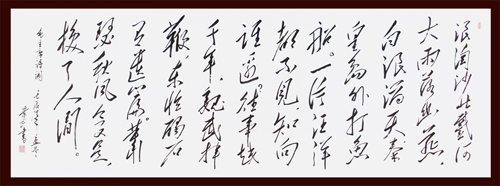 浪淘沙北戴河
大雨落幽燕，
白浪滔天秦
皇岛外打鱼
船。一片汪洋
都不见，知向
谁边。往事越
千年，魏武挥
鞭，东临碣石
有遗篇。萧
瑟秋风今又是，
换了人间。
毛主席诗词